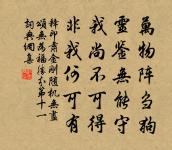 萬物陣芻狗
靈鑒無能守
我尚不可得
非我何可有
釋印肅金剛隨機無盡
頌無為福勝分第十一
詞典網集